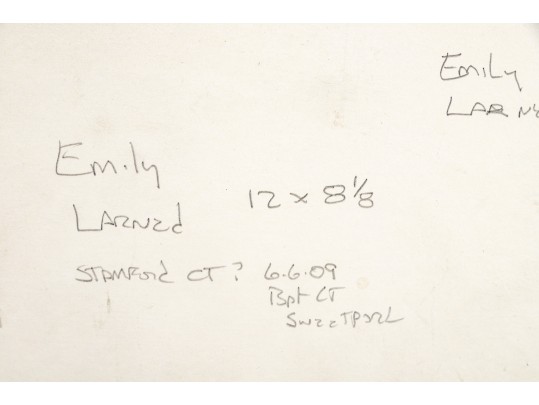 Emily
LARNE
Emily
LARNEd
12 x 8 1/8
STAMFORd CT? 6.6.09
Bpt CT
SWEETPORL